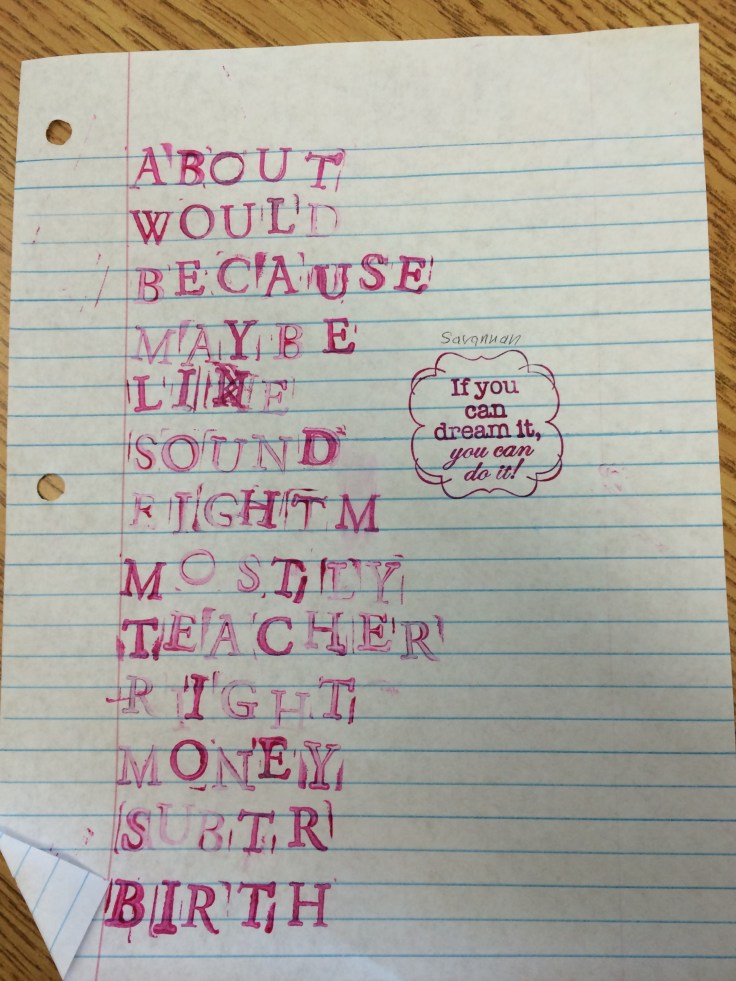 ABOUT
WOULD
BECAUSE
MAYBE
LINE
SOUND
EIGHTM
MOSTLY
TEACHER
RIGHT
MONEY
SUBTR
BIRTH
Savannah
If you
can
dream it,
you can
do it!